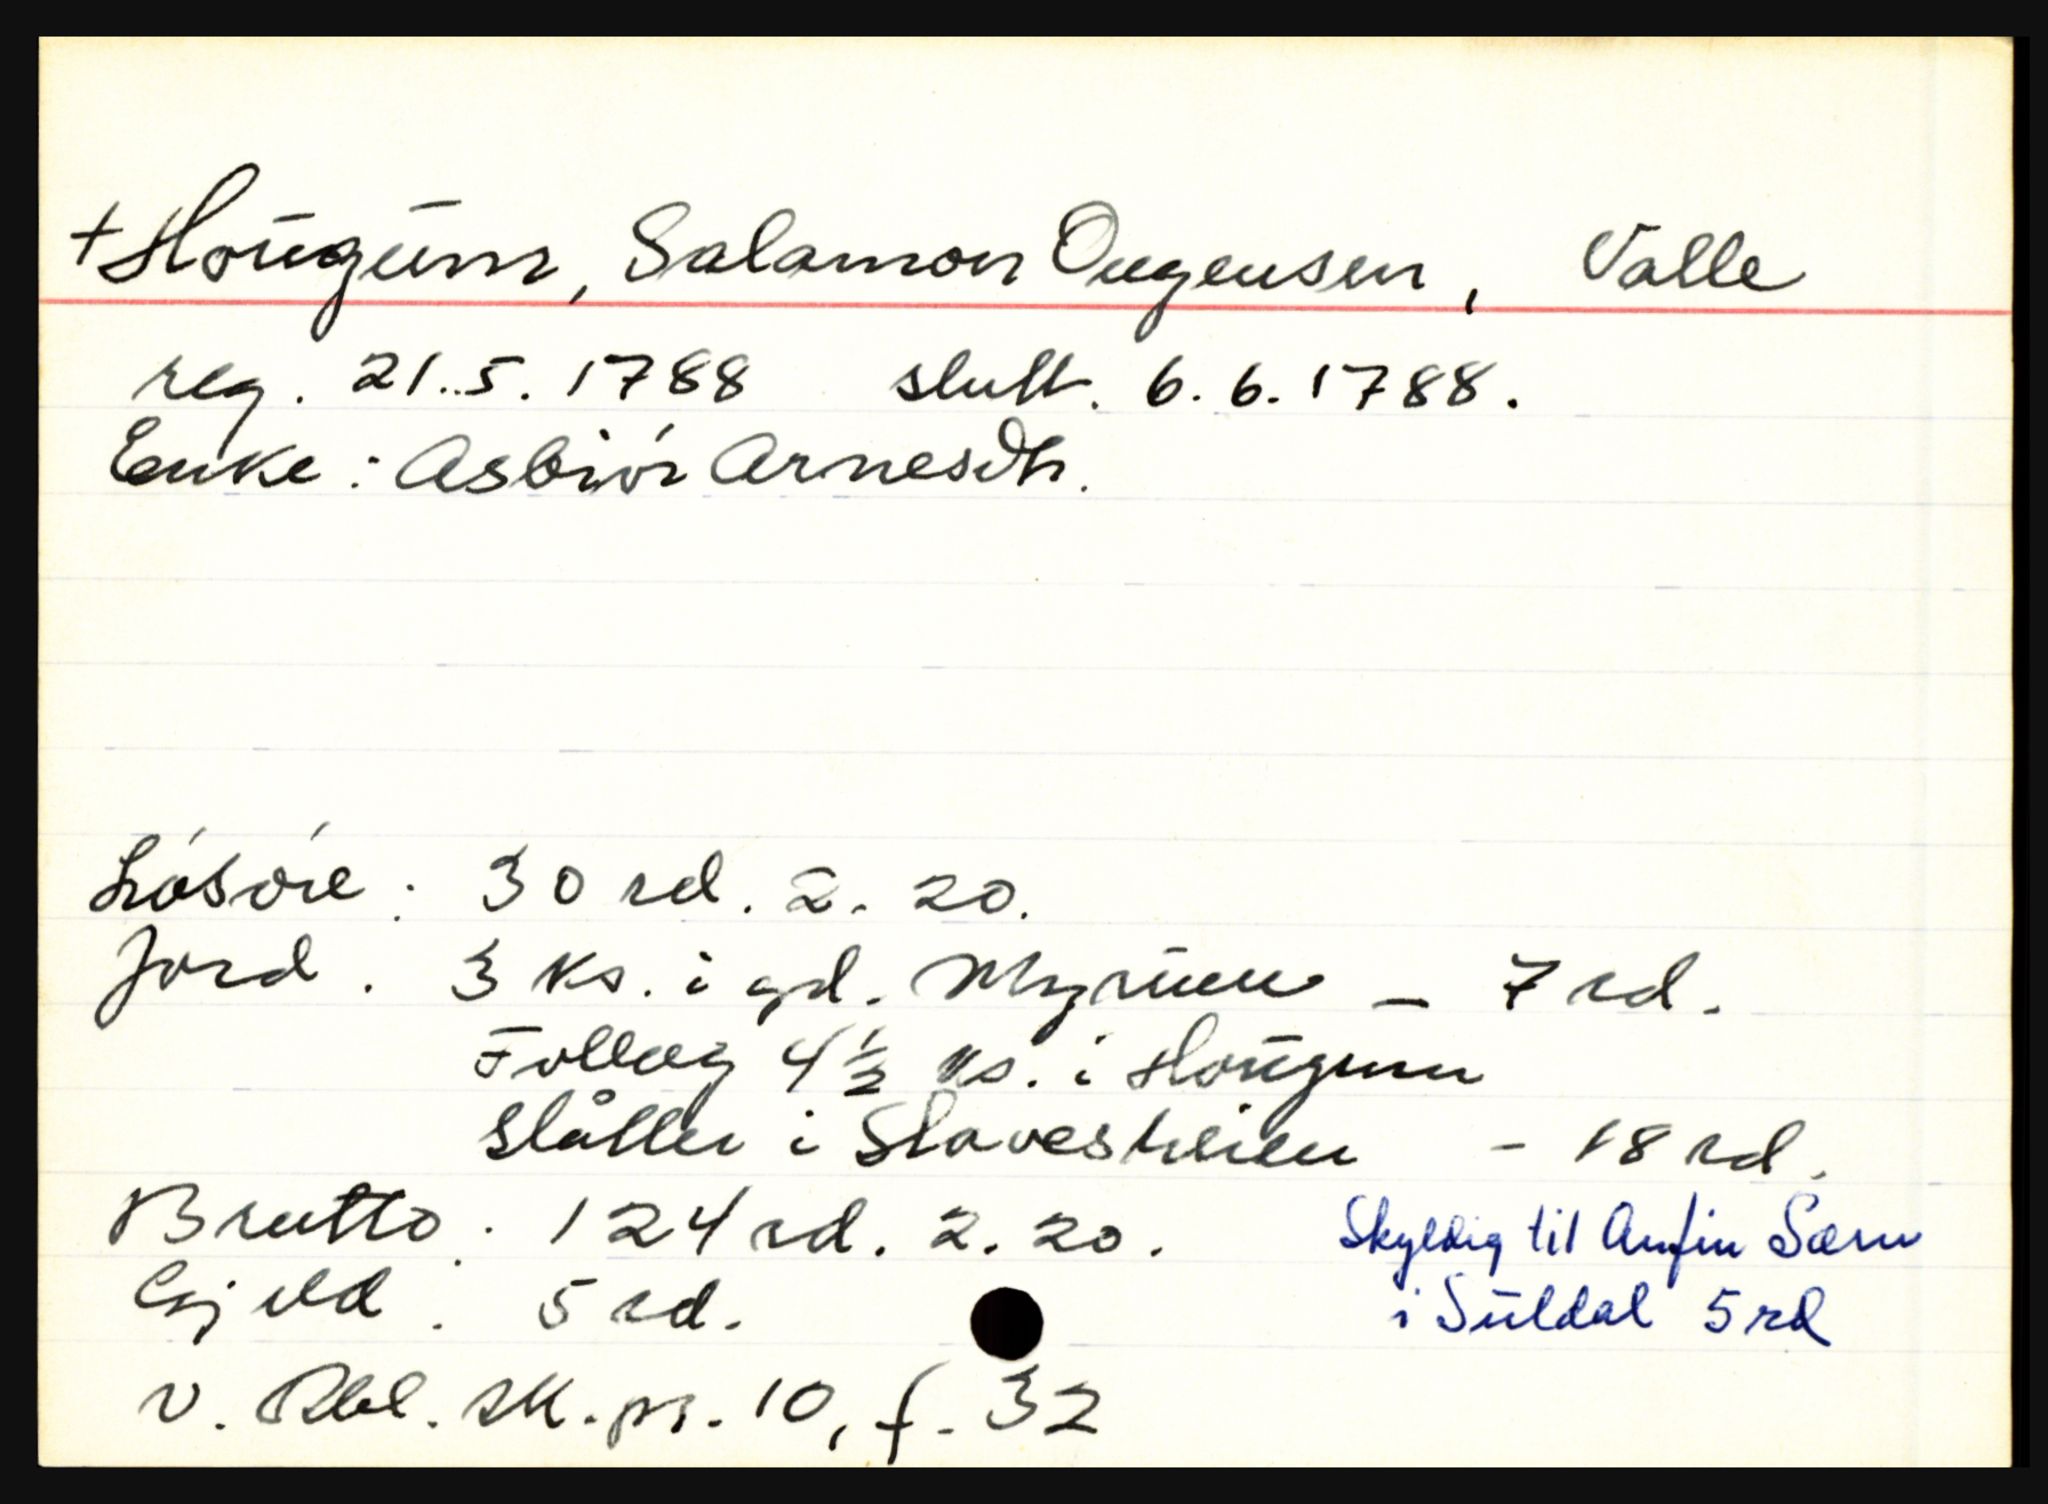 + Hougum, Salamon Ougensen, Valle
reg. 21.5. 1788 slutt. 6.6.1788.
Enke: Asbiør Arnesdtr.
Løsøre: 30 rd. 2. 20.
Jord. 3 ks. i gd. Myrum – 7 rd.
Follaug 4 1/2 ks. i Hougum
Slåtter i Slavesheien – 18 rd.
Brutto: 124 rd. 2. 20.
Skyldig til Anfin
Gjeld: 5 rd.
i Suldal 5 rd
v. Rbl. sk. pr. 10, f. 32